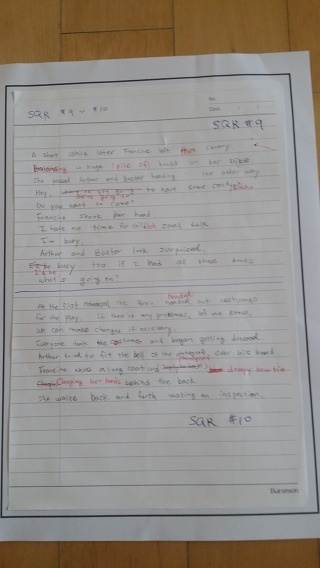 SQR #9 ~ #10
No.
Date
SQR #9
A short while later Francine left the library
balancing a huge (pile of) books on her bike
She passed Arthur and Baster heading the other way
Hey, to have some
Do you want to come?
Francine shook her head
I have no time for childish small talk
I'm busy.
Arthur and Baster look surprised.
I'd be busy too if I had all those books
what's going on?
At the first rehearsal, Mr. Ratburn handed out costumes
for the play. If there is any problems, let me know.
We can make changes if necessary
Everyone took the costumes and began getting dressed
Arthur tried to fit the bell of the over his head.
Francine wore a long coat and droopy bow tie.
Clasping her hands behind the back
She walks back and forth making an inspection.
SQR #10